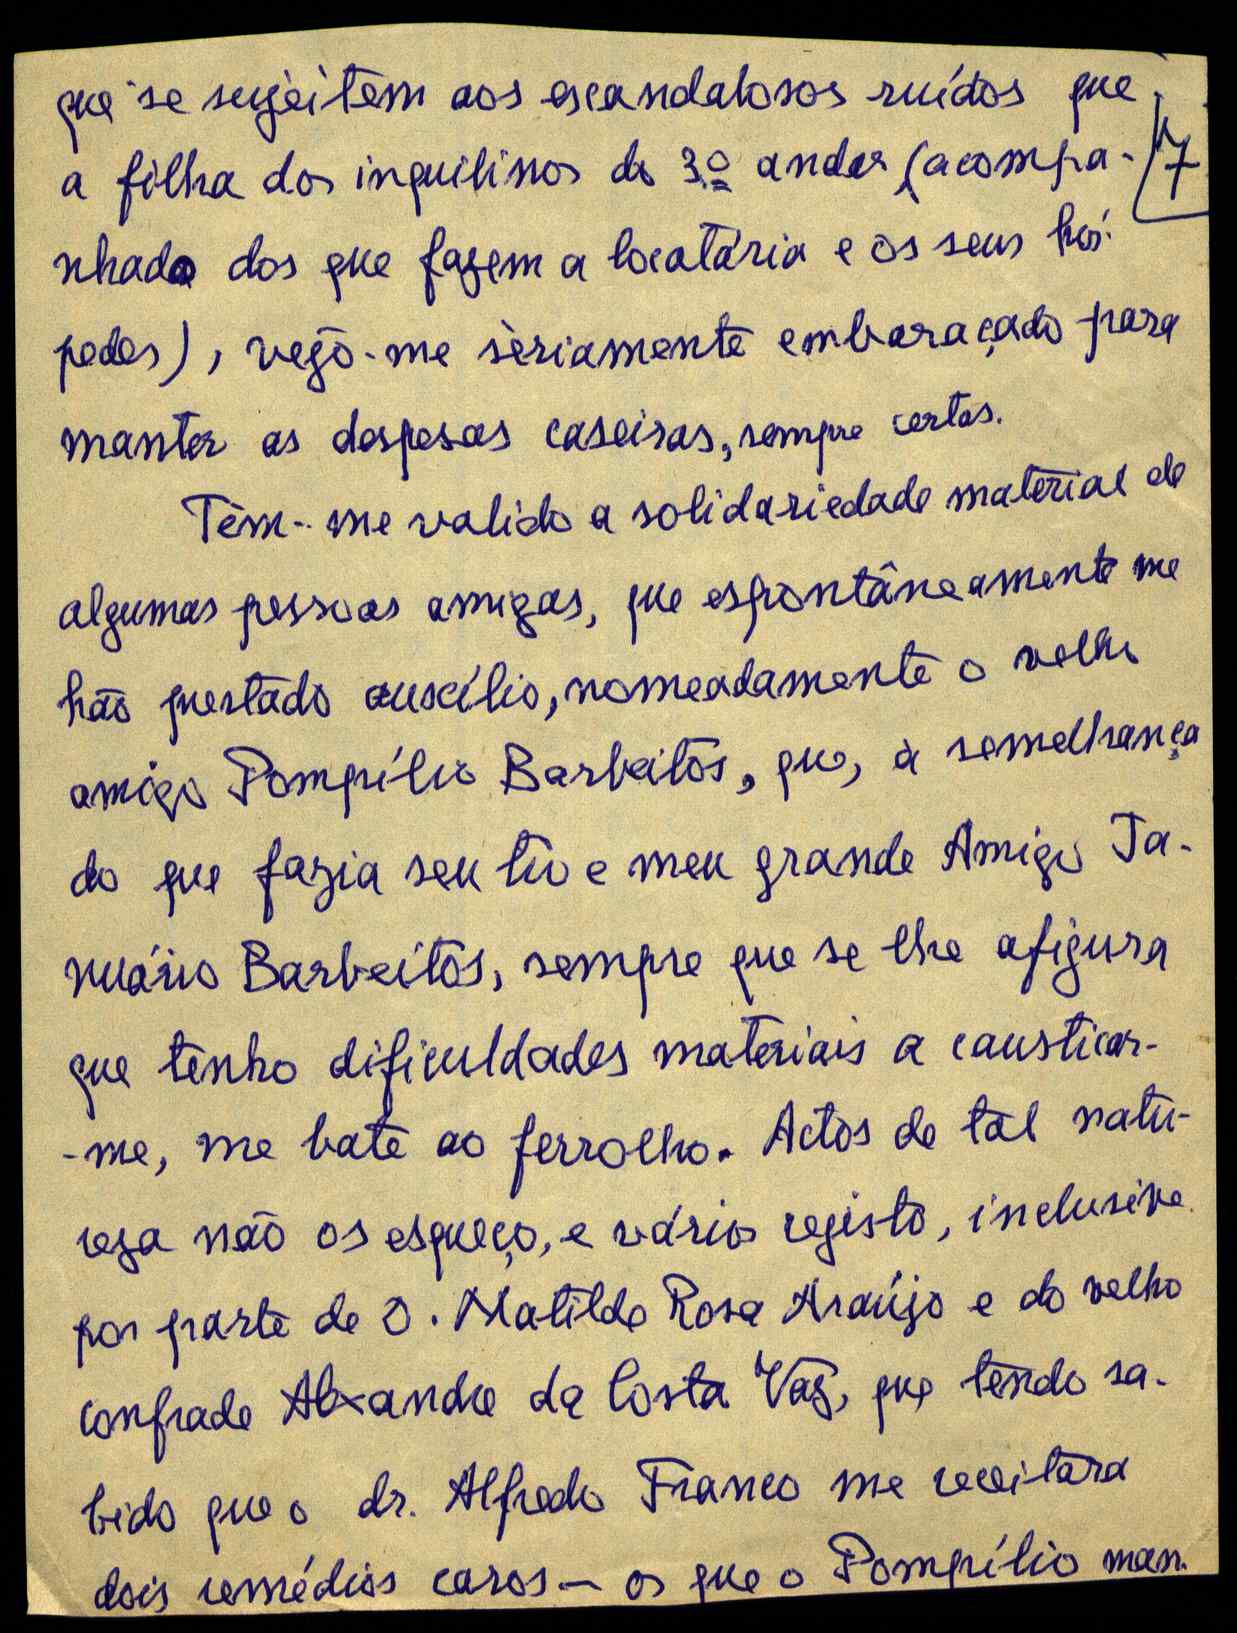 que se sujeitem aos escandalosos ruídos que
7
a filha dos inquilinos do 3º andar (acompa-
nhado dos que fazem a locatária e os seus hós-
pedes), vejo-me sèriamente embaraçado para
manter as despesas caseiras, sempre certas.
Têm-me valido a solidariedade material de
algumas pessoas amigas, que espontâneamente me
hão prestado auxílio, nomeadamente o velho
amigo Pompílio Barbeitos, que, à semelhança
do que fazia seu tio e meu grande Amigo Ja-
nuário Barbeitos, sempre que se lhe afigura
que tenho dificuldades materiais a causticar-
-me, me bate ao ferrolho. Actos de tal natu-
reza não os esqueço, e vários registo, inclusive
por parte de D. Matilde Rosa Araújo e do velho
confrade Alexandre da Costa Vaz, que tendo sa-
bido que o dr. Alfredo Franco me receitara
dois remédios caros — os que o Pompílio man-